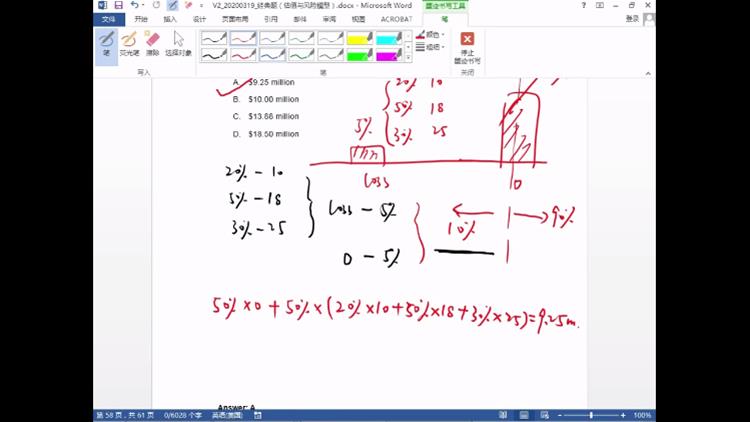 V2_20200319_经典题（估值与风险模型）.docx - Microsoft Word
墨迹书写工具
文件 开始 插入 设计 页面布局 引用 邮件 审阅 视图 ACROBAT 笔 登录
笔 荧光笔 橡皮擦 选择对象 颜色 粗细 停止墨迹书写
写入 笔 关闭
A. $9.25 million
B. $10.00 million
C. $13.66 million
D. $18.50 million
20% 10
50% 18
30% 25
5%
loss 0
20% - 10
5% - 18
30% - 25
loss - 5%
0 - 5%
10% 90%
50% × 0 + 50% × (20% × 10 + 50% × 18 + 30% × 25) = 9.25m.
Answer: A
第 58 页，共 61 页 0/6028 个字 英语(美国) 100%